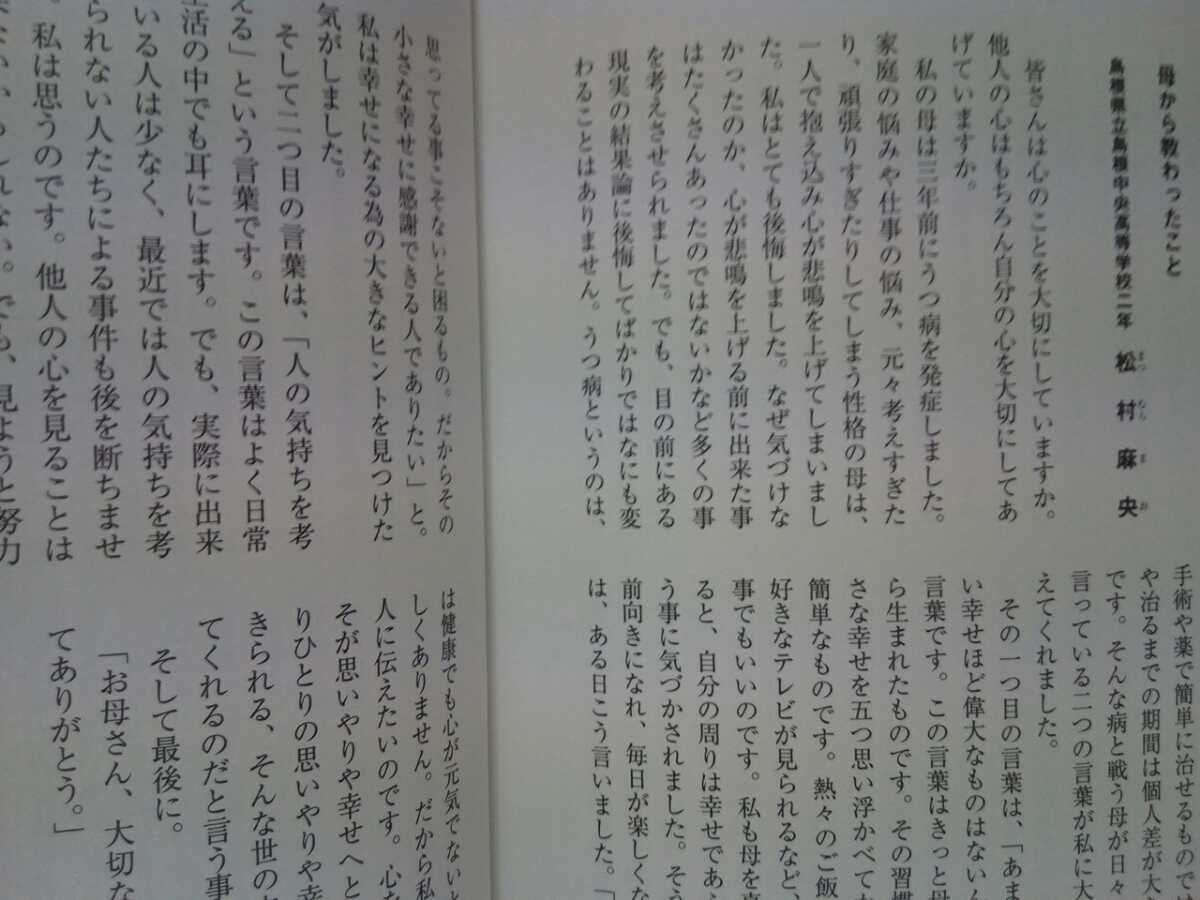 母から教わったこと
島根県立島根中央高等学校二年 松村麻央
まつ むら ま お
皆さんは心のことを大切にしていますか。
他人の心はもちろん自分の心を大切にしてあ
げていますか。
私の母は三年前にうつ病を発症しました。
家庭の悩みや仕事の悩み、元々考えすぎた
り、頑張りすぎたりしてしまう性格の母は、
一人で抱え込み心が悲鳴を上げてしまいまし
た。私はとても後悔しました。なぜ気づけな
かったのか、心が悲鳴を上げる前に出来た事
はたくさんあったのではないかなど多くの事
を考えさせられました。でも、目の前にある
現実の結果論に後悔してばかりではなにも変
わることはありません。うつ病というのは、
手術や薬で簡単に治せるものでは
や治るまでの期間は個人差が大
です。そんな病と戦う母が日々
言っている二つの言葉が私に大
えてくれました。
その一つ目の言葉は、「あま
い幸せほど偉大なものはないん
言葉です。この言葉はきっと母
ら生まれたものです。その習慣
さな幸せを五つ思い浮かべて
簡単なものです。熱々のご飯
好きなテレビが見られるなど、
事でもいいのです。私も母を
ると、自分の周りは幸せであ
う事に気づかされました。そう
前向きになれ、毎日が楽しくな
は、ある日こう言いました。「
思ってる事こそないと困るもの。だからその
小さな幸せに感謝できる人でありたい」と。
私は幸せになる為の大きなヒントを見つけた
気がしました。
そして二つ目の言葉は、「人の気持ちを考
える」という言葉です。この言葉はよく日常
生活の中でも耳にします。でも、実際に出来
いる人は少なく、最近では人の気持ちを考
られない人たちによる事件も後を断ちませ
。私は思うのです。他人の心を見ることは
ないかもしれない。でも、見ようと努力
は健康でも心が元気でないと
しくありません。だから私
人に伝えたいのです。心を
そが思いやりや幸せへと
りひとりの思いやりや幸
きられる、そんな世の
てくれるのだと言う事
そして最後に。
「お母さん、大切な
てありがとう。」